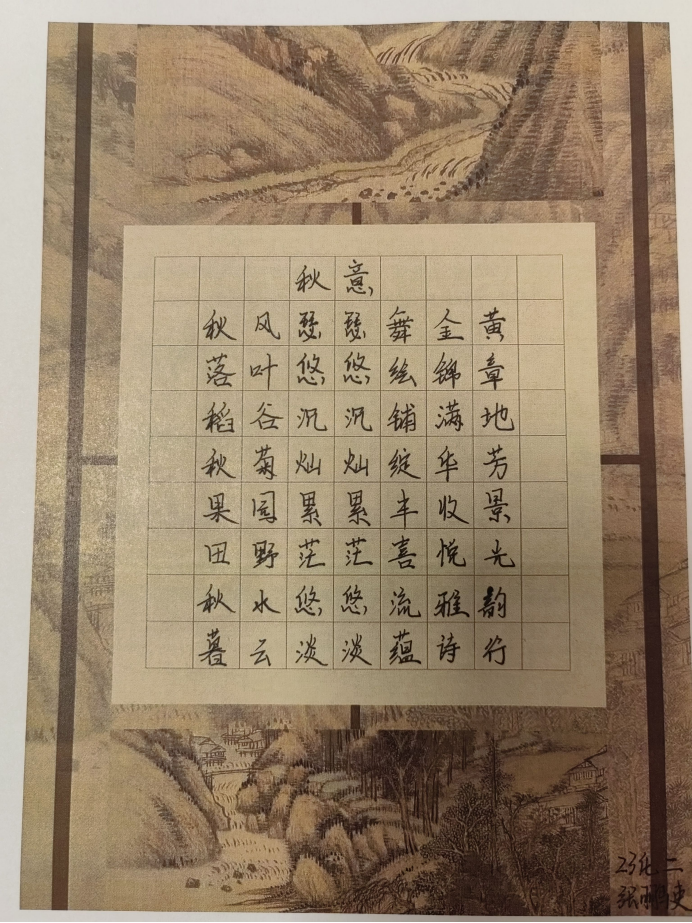 秋意
秋风瑟瑟舞金黄
落叶悠悠绘锦章
稻谷沉沉铺满地
秋菊灿灿绽华芳
果园累累丰收景
田野茫茫喜悦光
秋水悠悠流雅韵
暮云淡淡蕴诗行
23化二
张